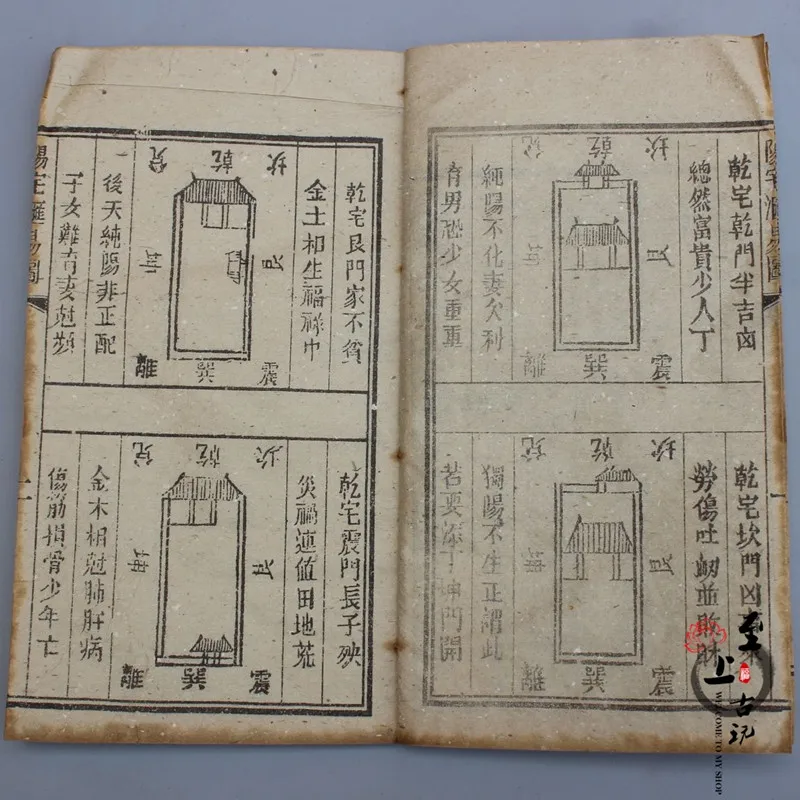 陽宅滙易圖
一
乾宅乾門半吉凶
總然富貴少人丁
兌 乾 坎
艮
離 巽 震
純陽不化妻欠利
育男恐少女重重
乾宅坎門凶
勞傷吐衂並敗財
兌 乾 坎
坤 艮
離 巽 震
獨陽不生正謂此
若要添丁坤門開
乾宅艮門家不貧
金土相生福祿中
兌 乾 坎
坤 艮
離 巽 震
後天純陽非正配
子女難育妻尅頻
乾宅震門長子殃
災禍連值田地荒
兌 乾 坎
坤 艮
離 巽 震
金木相尅肺肝病
傷筋損骨少年亡
陽宅滙易圖
二
至上古玩
WELCOME TO MY SHOP